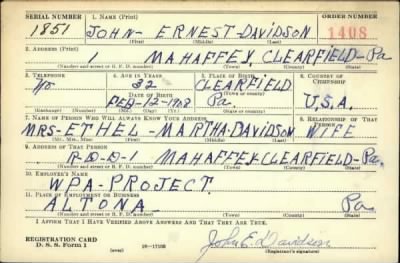 SERIAL NUMBER 1. NAME (Print) ORDER NUMBER
1851 JOHN - ERNEST - DAVIDSON 1408
(First) (Middle) (Last)
2. ADDRESS (Print)
1 MAHAFFEY, CLEARFIELD - Pa
(Number and street or R. F. D. number) (Town) (County) (State)
3. TELEPHONE 4. AGE IN YEARS 5. PLACE OF BIRTH 6. COUNTRY OF CITIZENSHIP
No 32 CLEARFIELD
DATE OF BIRTH
FEB-12-1908 Pa. U.S.A.
(Exchange) (Number) (Mo.) (Day) (Yr.) (State or country)
7. NAME OF PERSON WHO WILL ALWAYS KNOW YOUR ADDRESS 8. RELATIONSHIP OF THAT PERSON
MRS - ETHEL - MARTHA - DAVIDSON WIFE
(Mr., Mrs., Miss) (First) (Middle) (Last)
9. ADDRESS OF THAT PERSON
R-D-D-1 MAHAFFEY CLEARFIELD - Pa.
(Number and street or R. F. D. number) (Town) (County) (State)
10. EMPLOYER'S NAME
WPA - PROJECT.
11. PLACE OF EMPLOYMENT OR BUSINESS
ALTONA. Pa.
(Number and street or R. F. D. number) (Town) (County) (State)
I AFFIRM THAT I HAVE VERIFIED ABOVE ANSWERS AND THAT THEY ARE TRUE.
REGISTRATION CARD
D. S. S. Form 1 (over) 16-17105 John E. Davidson
(Registrant's signature)